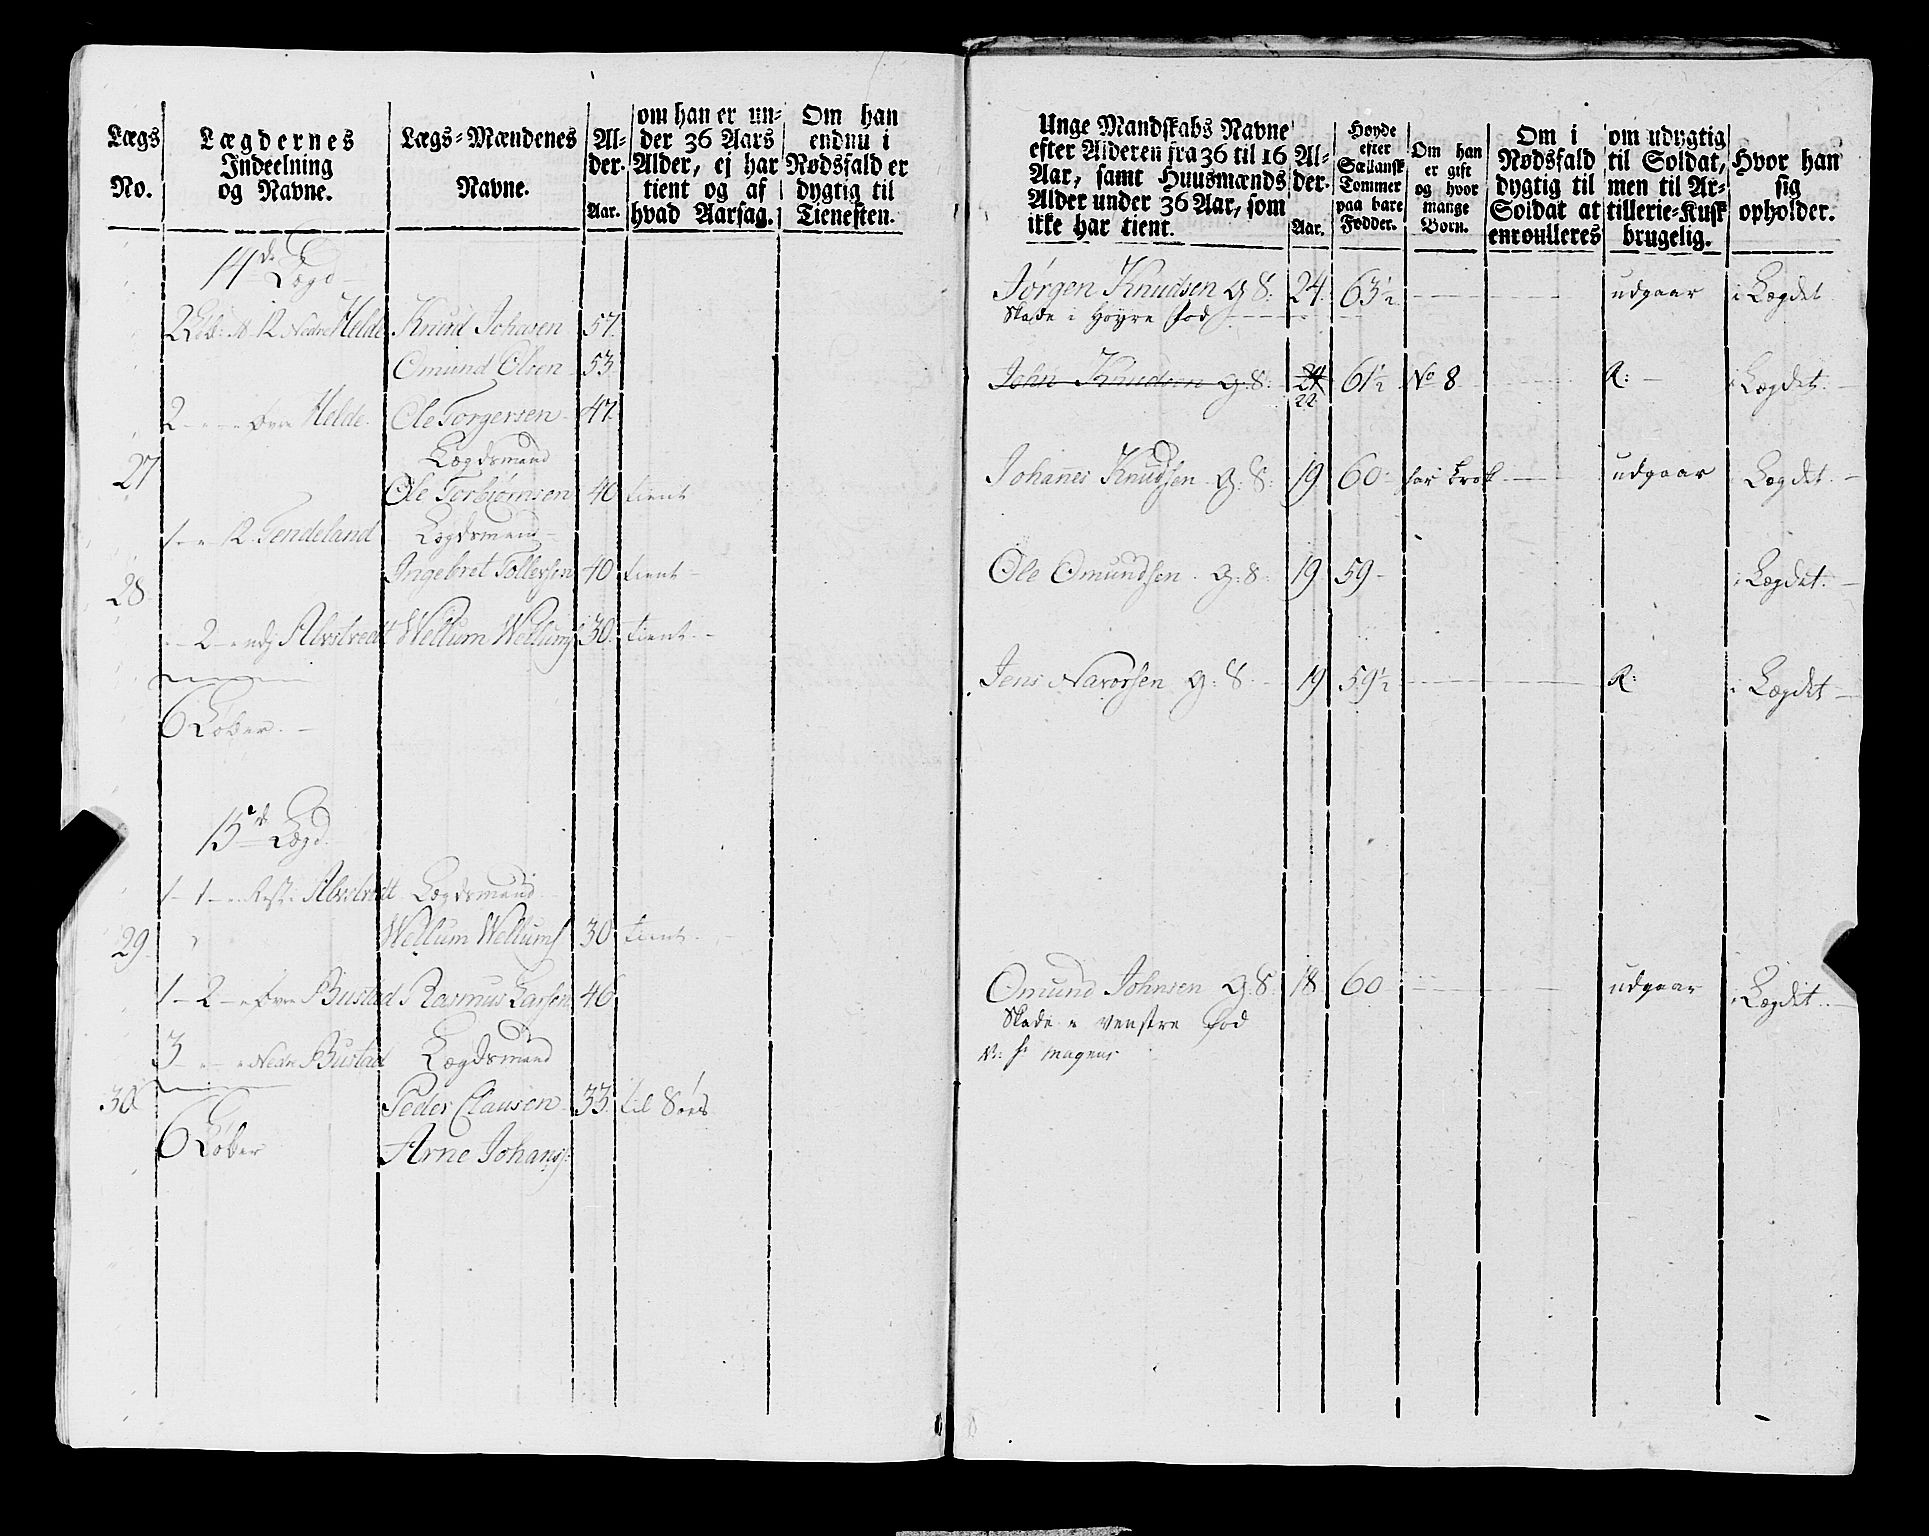 Lægs No.
Lægdernes Indeelning og Navne.
Lægs-Mændenes Navne.
Al-der. Aar.
om han er un-der 36 Aars Alder, ej har tient og af hvad Aarsag.
Om han endnu i Nødsfald er dygtig til Tienesten.
14de Lægd
2 No 12 Nedre Helde Knud Johnsen 57
Omund Olsen 53
2 Øvre Helde Ole Torgersen 47
Lægdsmand
27 Ole Torbiørnsen 40 tient
1 12 Tendeland Lægdsmand
28 Ingebret Tollefsen 40 tient
2 Alvstvedt Wellum Wellumf 30 tient
6 Løber
15de Lægd
1 - 1 Alvstvedt Lægdsmand
29 Wellum Wellumf 30 tient
1 - 2 Øvre Bustad Rasmus Larsen 46
3 Nedre Bustad Lægdsmand
30 Peder Clausen 33 til Søes
6 Løber Arne Johansf:
Unge Mandskabs Navne efter Alderen fra 36 til 16 Aar, samt Huusmænds Alder under 36 Aar, som ikke har tient.
Al-der. Aar.
Høyde efter Sællansk Tommer paa bare Fødder.
Om han er gift og hvor mange Børn.
Om i Nødsfald dygtig til Soldat at enroulleres
om udygtig til Soldat, men til Ar-tillerie-Kusk brugelig.
Hvor han sig opholder.
Jørgen Knudsen G: S: 24 63½ udgaar i Lægdet
Skade i Høyre fod
John Knudsen G: S: 24 61½ No 8 R: i Lægdet
22
Johanes Knudsen G: S: 19 60 udgaar i Lægdet
Ole Omundsen G: S: 19 59 i Lægdet
Jens Navorsen G: S. 19 59½ R: i Lægdet
Omund Johnsen G: S 18 60 udgaar i Lægdet
Skade i venstre fod